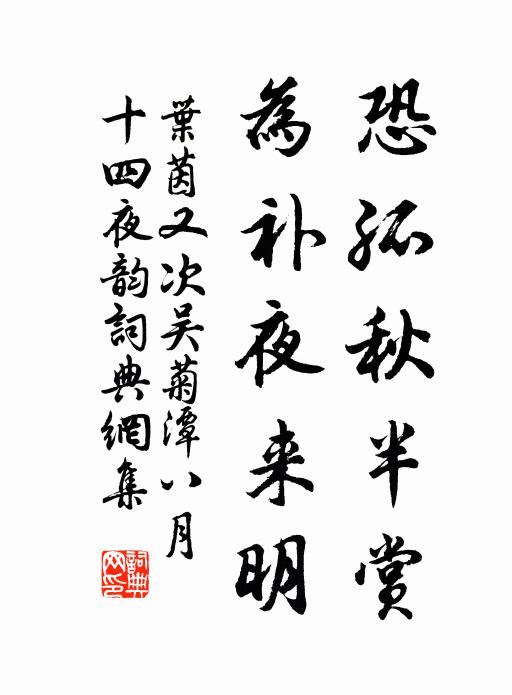 恐孤秋半赏
為补夜来明
葉茵又次吴菊潭八月
十四夜韵詞典網集
詞典
网印